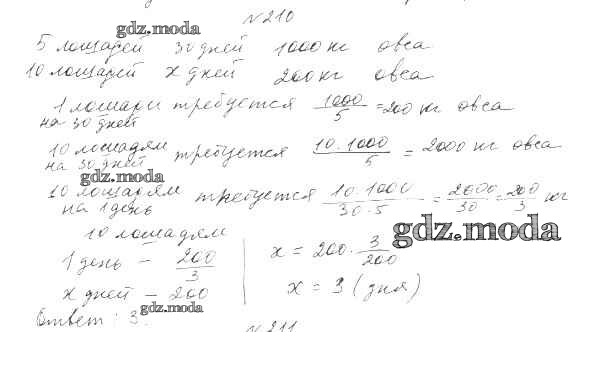 №210
gdz.moda
5 лошадей 30 дней 1000 кг овса
10 лошадей x дней 200 кг овса
1 лошади требуется 1000/5 = 200 кг овса
на 30 дней
10 лошадям требуется 10·1000/5 = 2000 кг овса
на 30 дней
gdz.moda
10 лошадям требуется 10·1000/30·5 = 2000/30 = 200/3 кг
на 1 день
gdz.moda
10 лошадям
1 день – 200/3
x дней – 200
x = 200 · 3/200
x = 3 (дня)
gdz.moda
Ответ: 3.
№211